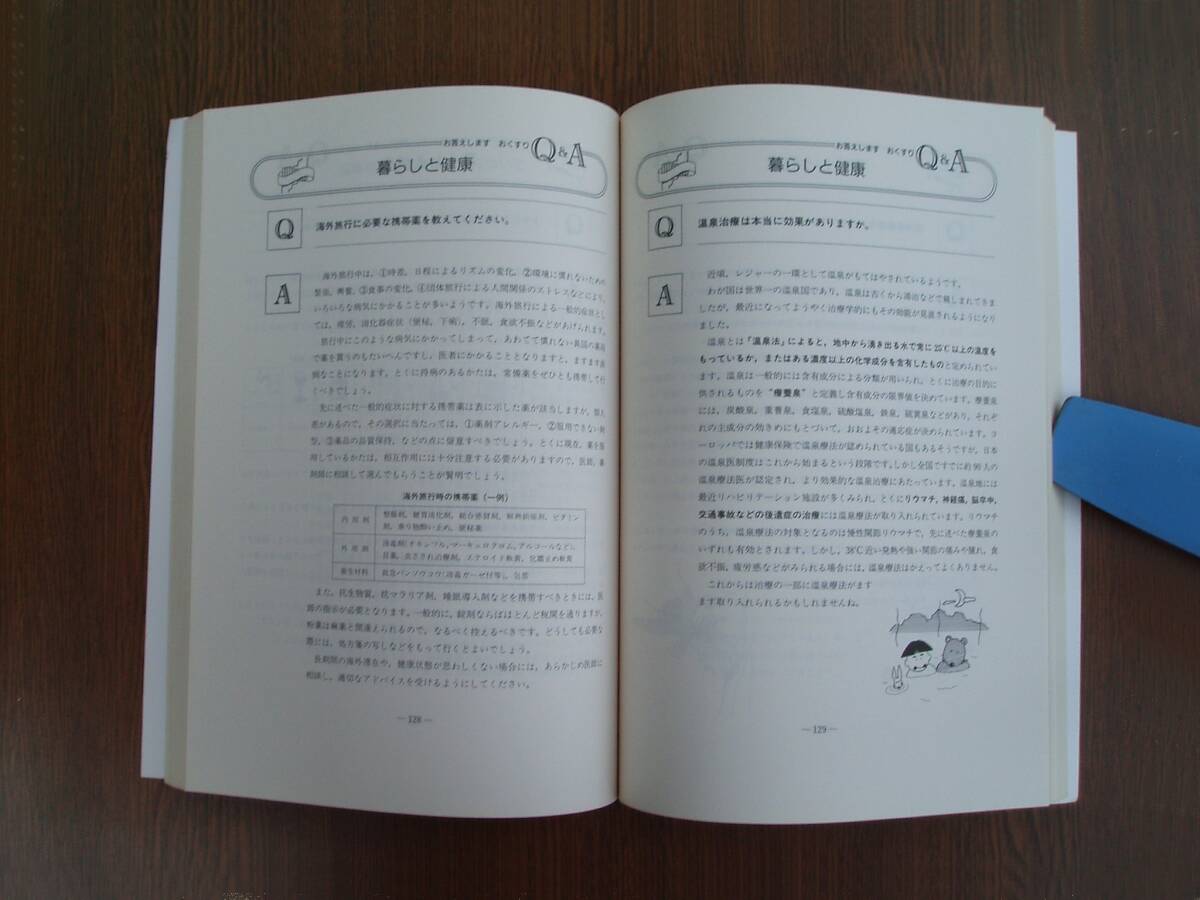 お答えします おくすり Q&A
暮らしと健康
Q 海外旅行に必要な携帯薬を教えてください。
A 海外旅行中は、①時差、日程によるリズムの変化、②環境に慣れないための
緊張、興奮、③食事の変化、④団体旅行による人間関係のストレスなどにより、
いろいろな病気にかかることが多いようです。海外旅行による一般的症状とし
ては、疲労、消化器症状（便秘、下痢）、不眠、食欲不振などがあげられます。
旅行中にこのような病気にかかってしまって、あわてて慣れない異国の薬局
で薬を買うのもたいへんですし、医者にかかることとなりますと、ますます臆
病なことになります。とくに持病のあるかたは、常備薬をぜひとも携帯して行
くべきでしょう。
先に述べた一般的症状に対する携帯薬は表に示した薬が該当しますが、個人
差があるので、その選択に当たっては、①薬剤アレルギー、②服用できない剤
型、③薬品の品質保持、などの点に留意すべきでしょう。とくに現在、薬を服
用しているかたは、相互作用には十分注意する必要がありますので、医師、薬
剤師に相談して選んでもらうことが賢明でしょう。
海外旅行時の携帯薬（一例）
内用剤 整腸剤、健胃消化剤、総合感冒剤、解熱鎮痛剤、ビタミン
剤、乗り物酔い止め、便秘薬
外用剤 消毒剤（オキシフル、マーキュロクロム、アルコールなど）、
目薬、虫さされ治療剤、ステロイド軟膏、化膿止め軟膏
衛生材料 救急バンソウコウ（消毒ガーゼ付等）、包帯
また、抗生物質、抗マラリア剤、睡眠導入剤などを携帯すべきときには、医
師の指示が必要となります。一般的に、錠剤ならばほとんど税関を通りますが、
粉薬は麻薬と間違えられるので、なるべく控えるべきです。どうしても必要な
際には、処方箋の写しなどをもって行くとよいでしょう。
長期間の海外滞在や、健康状態が思わしくない場合には、あらかじめ医師に
相談し、適切なアドバイスを受けるようにしてください。
— 128 —
お答えします おくすり Q&A
暮らしと健康
Q 温泉治療は本当に効果がありますか。
A 近頃、レジャーの一環として温泉がもてはやされているようです。
わが国は世界一の温泉国であり、温泉は古くから湯治などで親しまれてきま
したが、最近になってようやく治療学的にもその効能が見直されるようになり
ました。
温泉とは「温泉法」によると、地中から湧き出る水で常に25℃以上の温度を
もっているか、またはある濃度以上の化学成分を含有したものと定められてい
ます。温泉は一般的には含有成分による分類が用いられ、とくに治療の目的に
供されるものを“療養泉”と定義し含有成分の限界値を決めています。療養泉
には、炭酸泉、重曹泉、食塩泉、硫酸塩泉、鉄泉、硫黄泉などがあり、それぞ
れの主成分の効きめにもとづいて、おおよその適応症が決められています。ヨ
ーロッパでは健康保険で温泉療法が認められている国もあるそうですが、日本
の温泉医制度はこれから始まるという段階です。しかし全国ですでに約90人の
温泉療法医が認定され、より効果的な温泉治療にあたっています。温泉地には
最近リハビリテーション施設が多くみられ、とくにリウマチ、神経痛、脳卒中、
交通事故などの後遺症の治療には温泉療法が取り入れられています。リウマチ
のうち、温泉療法の対象となるのは慢性関節リウマチで、先に述べた療養泉の
いずれも有効とされます。しかし、38℃近い発熱や強い関節の痛みや腫れ、食
欲不振、疲労感などがみられる場合には、温泉療法はかえってよくありません。
これからは治療の一部に温泉療法がます
ます取り入れられるかもしれませんね。
— 129 —